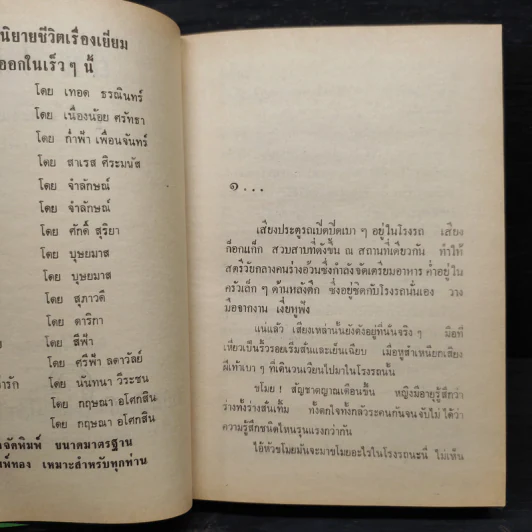 นิยายชีวิตเรื่องเยี่ยม
ออกในเร็ว ๆ นี้
โดย เทอด ธรณินทร์
โดย เนื่องน้อย ศรัทธา
โดย ก่ำฟ้า เพื่อนจันทร์
โดย สาเรส ศิระมนัส
โดย จำลักษณ์
โดย จำลักษณ์
โดย ศักดิ์ สุริยา
โดย บุษยมาส
โดย บุษยมาส
โดย สุภาวดี
โดย ดาริกา
โดย สีฟ้า
โดย ศรีฟ้า ลดาวัลย์
โดย นันทนา วีระชน
โดย กฤษณา อโศกสิน
โดย กฤษณา อโศกสิน
จัดพิมพ์ ขนาดมาตรฐาน
พ์ทอง เหมาะสำหรับทุกท่าน
๑ . . .
เสียงประตูรถเปิดปิดเบา ๆ อยู่ในโรงรถ เสียง
ก็อกแก็ก สวบสาบที่ดังขึ้น ณ สถานที่เดียวกัน ทำให้
สตรีวัยกลางคนร่างอ้วนซึ่งกำลังจัดเตรียมอาหาร ค่ำอยู่ใน
ครัวเล็ก ๆ ด้านหลังตึก ซึ่งอยู่ชิดกับโรงรถนั่นเอง วาง
มือจากงาน เงี่ยหูฟัง
แน่แล้ว เสียงเหล่านั้นยังดังอยู่ที่นั่นจริง ๆ มือที่
เหี่ยวเป็นริ้วรอยเริ่มสั่นและเย็นเฉียบ เมื่อหูสำเหนียกเสียง
ฝีเท้าเบา ๆ ที่เดินวนเวียนไปมาในโรงรถนั้น
ขโมย ! สัญชาตญาณเตือนขึ้น หญิงมีอายุรู้สึกว่า
ร่างทั้งร่างสั่นเทิ้ม ทั้งตกใจทั้งกลัวระคนกันจนจับไม่ได้ว่า
ความรู้สึกชนิดไหนรุนแรงกว่ากัน
ไอ้หัวขโมยมันจะมาขโมยอะไรในโรงรถนะนี่ ไม่เห็น